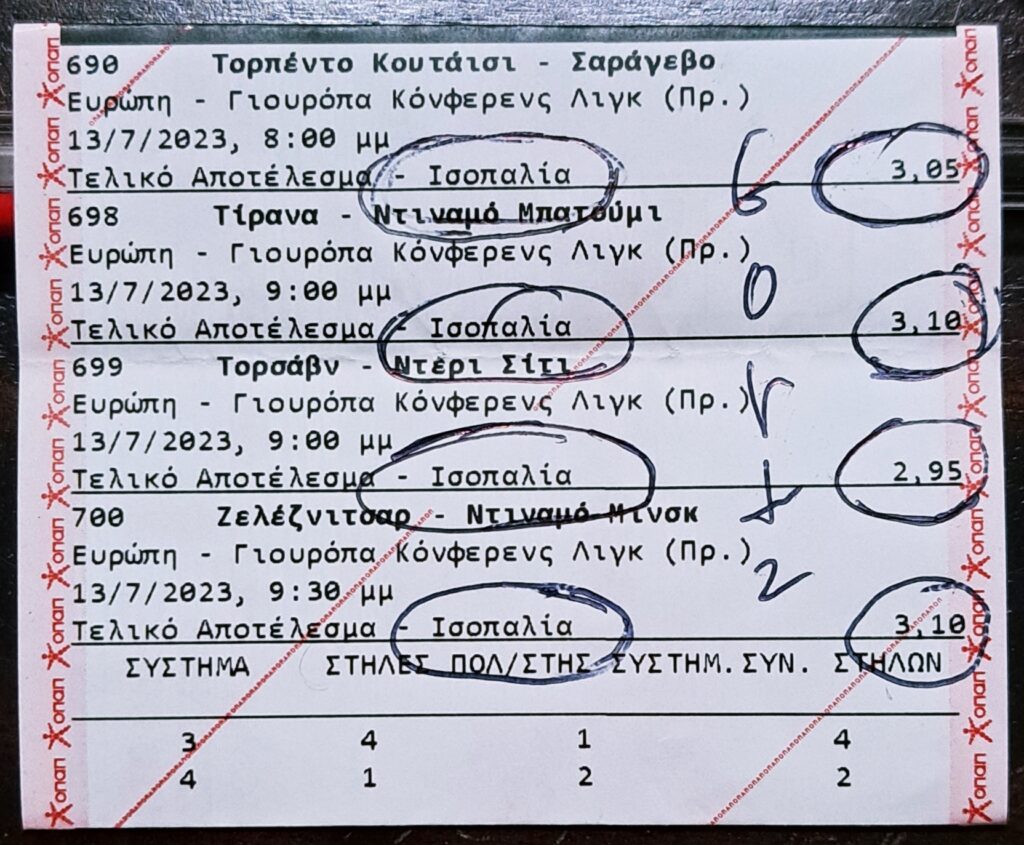 690 Τορπέντο Κουτάισι - Σαράγεβο
Ευρώπη - Γιουρόπα Κόνφερενς Λιγκ (Πρ.)
13/7/2023, 8:00 μμ
Τελικό Αποτέλεσμα - Ισοπαλία 3,05
698 Τίρανα - Ντιναμό Μπατούμι
Ευρώπη - Γιουρόπα Κόνφερενς Λιγκ (Πρ.)
13/7/2023, 9:00 μμ
Τελικό Αποτέλεσμα - Ισοπαλία 3,10
699 Τορσάβν - Ντέρι Σίτι
Ευρώπη - Γιουρόπα Κόνφερενς Λιγκ (Πρ.)
13/7/2023, 9:00 μμ
Τελικό Αποτέλεσμα - Ισοπαλία 2,95
700 Ζελέζνιτσαρ - Ντιναμό Μινσκ
Ευρώπη - Γιουρόπα Κόνφερενς Λιγκ (Πρ.)
13/7/2023, 9:30 μμ
Τελικό Αποτέλεσμα - Ισοπαλία 3,10
ΣΥΣΤΗΜΑ ΣΤΗΛΕΣ ΠΟΛ/ΣΤΗΣ ΣΥΣΤΗΜ. ΣΥΝ. ΣΤΗΛΩΝ
3 4 1 4
4 1 2 2